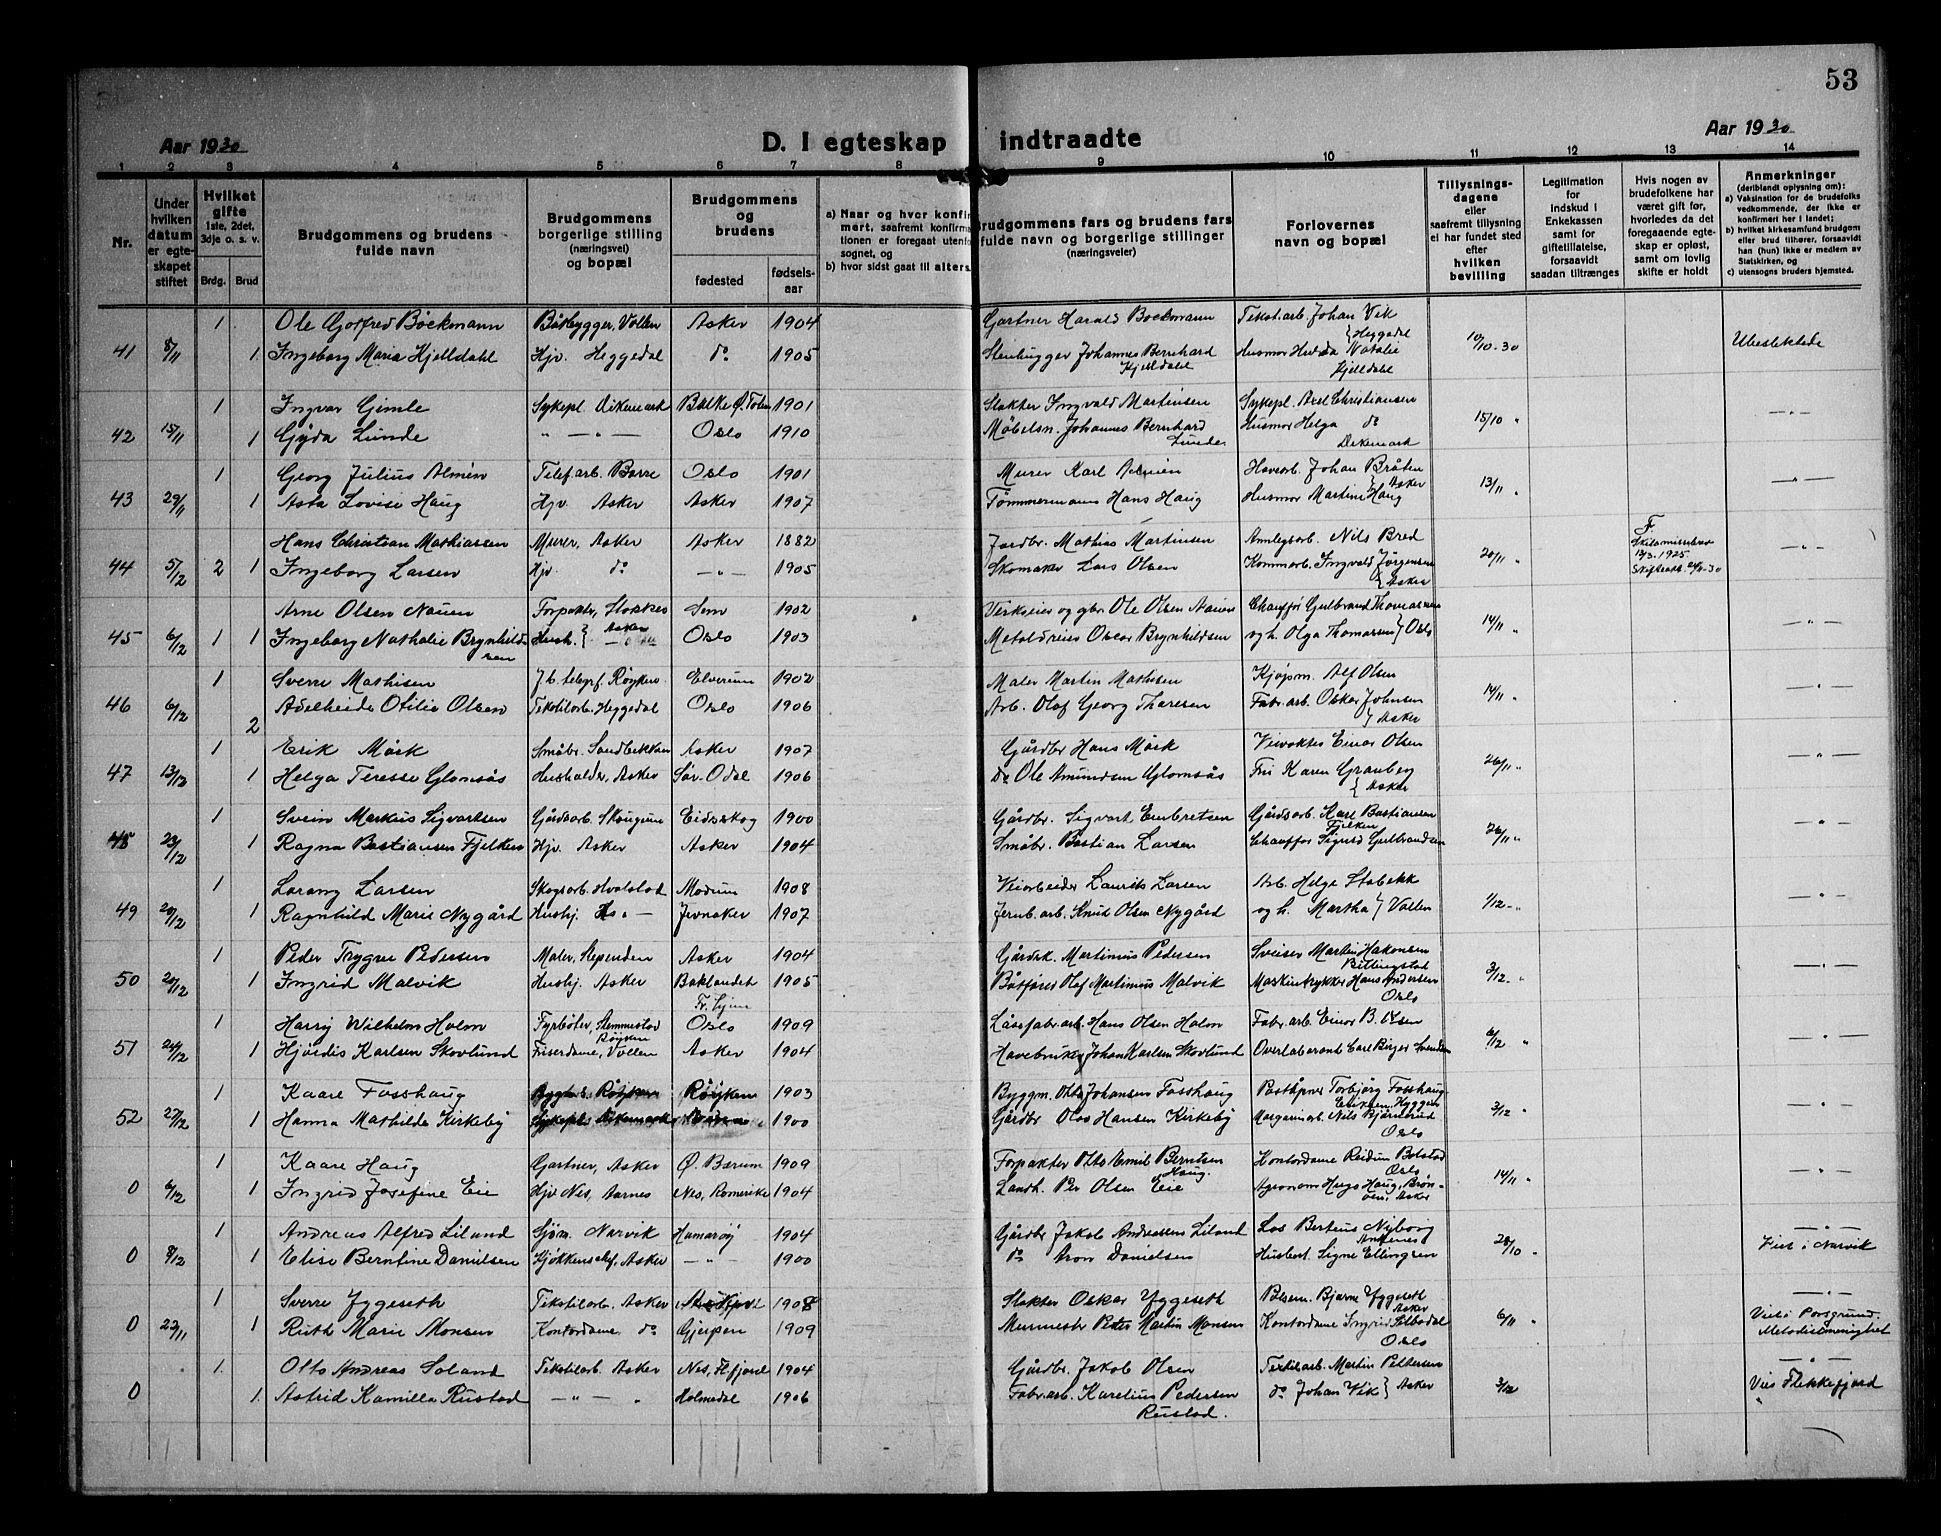 53
Aar 1930
D. I egteskap indtraadte
Aar 1930
1 2 3 4 5 6 7 8 9 10 11 12 13 14
Nr.
Under hvilken datum er egteskapet stiftet
Hvilket gifte 1ste, 2det, 3dje o. s. v.
Brdg. Brud
Brudgommens og brudens fulde navn
Brudgommens borgerlige stilling (næringsvei) og bopæl
Brudgommens og brudens
fødested
fødsels-aar
a) Naar og hvor konfirmert, saafremt konfirmationen er foregaat utenfor sognet, og
b) hvor sidst gaat til alters.
Brudgommens fars og brudens fars fulde navn og borgerlige stillinger (næringsveier)
Forlovernes navn og bopæl
Tillysnings-dagene eller saafremt tillysning ei har fundet sted efter hvilken bevilling
Legitimation for indskud i Enkekassen samt for giftetillatelse, forsaavidt saadan tiltrænges
Hvis nogen av brudefolkene har været gift før, hvorledes da det foregaaende egteskap er opløst, samt om lovlig skifte er holdt
Anmerkninger (deriblandt oplysning om):
a) Vaksination for de brudefolks vedkommende, der ikke er konfirmert her i landet;
b) hvilket kirkesamfund brudgom eller brud tilhører, forsaavidt han (hun) ikke er medlem av Statskirken, og
c) utensogns bruders hjemsted.
1 Ole Gotfred Böckmann Båtbygger, Vollen Asker 1904 Gartner Harald Bockmann Tekst.arb. Johan Vik
Heggedal
41 8/11 1 Ingeborg Maria Kjelldahl Hjv. Heggedal do 1905 Stenhugger Johannes Bernhard Kjelldahl Husmor Hulda Natalie Kjelldahl 10/10-30 Ubeslektede
1 Ingvar Gimle Sykepl. Dikemark Balke Ø. Toten 1901 Slakter Ingvald Martinsen Sykepl. Axel Christiansen
42 15/11 1 Gyda Lunde " — " — Oslo 1910 Møbelsn. Johannes Bernhard Lunde Husmor Helga do Dikemark 15/10 " — " —
1 Georg Julius Almèn Telef.arb. Oslo 1901 Murer Karl Almèn Havearb. Johan Bråten
43 29/11 1 Asta Lovise Haug Hjv. Asker Asker 1907 Tømmermann Hans Haug Husmor Martine Haug Asker 13/11 " — " —
Hans Christian Mathiassen Murer, Asker Asker 1882 Jordbr. Mathias Martinsen Anlegsarb. Nils Bred F
44 5/12 2 1 Ingeborg Larsen Hjv. do — " — 1905 Skomaker Lars Olsen Kommarb. Ingvald Jørgensen Asker 20/11 " 1925 — " —
Arne Olsen Nauen Forpakter, Slokkes Sem 1902 og gbr. Ole Olsen Nauen Chauffør Gulbrand Thomassen
45 6/12 1 1 Ingeborg Nathalie Brynhildsen Hush. Asker Oslo 1903 Metaldreier Oscar Brynhildsen og h. Olga Thomassen Oslo 14/11 " — " —
1 Sverre Mathisen J.b. telegrf. Røyken Elverum 1902 Maler Martin Mathisen Kjøpm. Alf Olsen
46 6/12 2 Adelheide Otilie Olsen Tekstilarb. Heggedal Oslo 1906 Arb. Olaf Georg Thoresen Fabr.arb. Oskar Johnsen Asker 14/11 " — " —
1 Erik Mörk Småbr. Sandbekken Asker 1907 Gårdbr Hans Mörk Veivokter Einar Olsen
47 13/12 1 Helga Teresse Glomsås Husholder, Asker Sør-Odal 1906 Do Ole Amundsen Glomsås Fru Karen Granberg Asker 26/11 " — " —
1 Svein Markus Sigvartsen Gårdsarb. Skaugum Eidskog 1900 Gårdbr. Sigvart Embretsen Gårdsarb. Karl Bastiansen Fjelken
48 23/12 1 Ragna Bastiansen Fjelken Hjv. Asker Asker 1904 Småbr. Bastian Larsen Chauffør Sigurd Gulbrandsen 26/11 " — " —
1 Larang Larsen Skogsarb. Hvalstad Modum 1908 Veiarbeider Laurits Larsen Arb. Helge Stabekk
49 20/12 1 Ragnhild Marie Nygård Hushj. — " — Jevnaker 1907 Jernb.arb. Knud Olsen Nygård og h. Martha Vollen 1/12 - " — " —
1 Peder Trygve Pedersen Maler, Slependen Asker 1904 Gårdsk. Martinius Pedersen Sveiser Martin Hakonsen Billingstad
50 20/12 1 Ingrid Malvik Hushj. Asker Baklandet Tr.hjem 1905 Båtfører Olaf Martinius Malvik Maskintrykker Hans Andersen Oslo 3/12 - " — " —
1 Harry Wilhelm Holm Fyrbøter, Slemmestad Røyken Oslo 1909 Låsefabr.arb. Hans Olsen Holm Fabr.arb. Einar B. Olsen
51 24/12 1 Hjördis Karlsen Skovlund Friserdame, Vollen Asker 1904 Havebruker Johan Karlsen Skovlund Overlaborant Carl Birger Svendsen 6/12 " — " —
1 Kaare Fosshaug Røyken Røyken 1903 Byggm. Otto Johansen Fosshaug Poståpner Torbjørg Fosshaug
52 27/12 1 Hanna Mathilde Kirkeby Sykepl. Dikemark 1900 Gårdbr Olas Hansen Kirkeby Margarinarb. Nils Bjørnerud Oslo 3/12 " — " —
1 Kaare Haug Gartner, Asker Ø. Bærum 1909 Forpakter Otto Emil Berntsen Haug. Kontordame Reidun Bolstad Oslo
0 6/12 1 Ingrid Josefine Eie Hjv Nes, Aarnes Nes, Romerike 1904 Landh. Per Olsen Eie Agronom Hugs Haug, Brønøen, Asker 14/11 " — " —
1 Andreas Alfred Liland Sjøm. Narvik Hamarøy 1904 Gårdbr Jakob Andreassen Liland Los Bertius Nyborg Andenes — " —
0 8/12 1 Elise Berntine Danielsen Kjøkkenchef, Asker — " — 1900 do Aron Danielsen Husbest. Signe Ellingren 28/10 " Viet i Narvik
1 Sverre Yggeseth Tekstilarb. Asker 1908 Slakter Oskar Yggeseth Bjarne Yggeseth Asker — " —
0 22/11 1 Ruth Marie Monsen Kontordame do Gjerpen 1909 Murmester Peter Martin Monsen Kontordame Ingrid Oslo 6/11 " Viet i Porsgrund Metodistmenighet
1. Otto Andreas Soland Tekstilarb. Asker Nes, Flfjord 1904 Gårdbr. Jakob Olsen Textilarb. Martin Pettersen — " —
0 1. Astrid Kamilla Rustad — " — " Holmedal 1906 Fabr.arb. Karelius Pedersen Rustad. do Johan Vik Asker 3/12 " Viet Flekkefjord